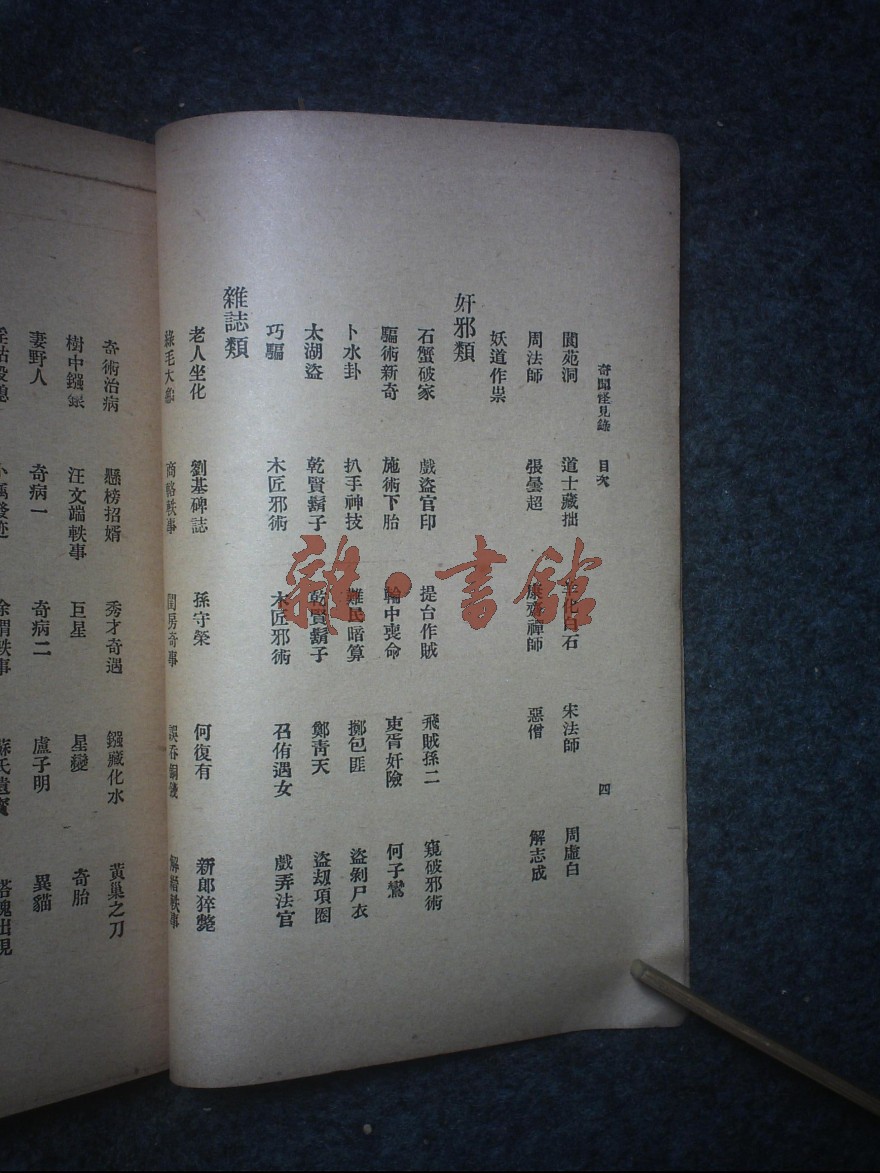 奇聞怪見錄 目次 四
閬苑洞 道士藏拙 羊化白石 宋法師 周虛白
周法師 張曇超 康齋禪師 惡僧 解志成
妖道作祟
奸邪類
石蟹破家 戲盜官印 提台作賊 飛賊孫二 窺破邪術
騙術新奇 施術下胎 輪中喪命 吏胥奸險 何子鸞
卜水卦 扒手神技 難民暗算 擲包匪 盜剝尸衣
太湖盜 乾賢鬍子 乾賢鬍子 鄭青天 盜刼項圈
巧騙 木匠邪術 木匠邪術 召侑遇女 戲弄法官
雜誌類
老人坐化 劉基碑誌 孫守榮 何復有 新郎猝斃
綠毛大 商輅軼事 閨房奇事 誤吞銅錢 解縉軼事
奇術治病 懸榜招婿 秀才奇遇 鏹藏化水 黃巢之刀
樹中鏹銀 汪文端軼事 巨星 星變 奇胎
妻野人 奇病一 奇病二 盧子明 異貓
雜·書館